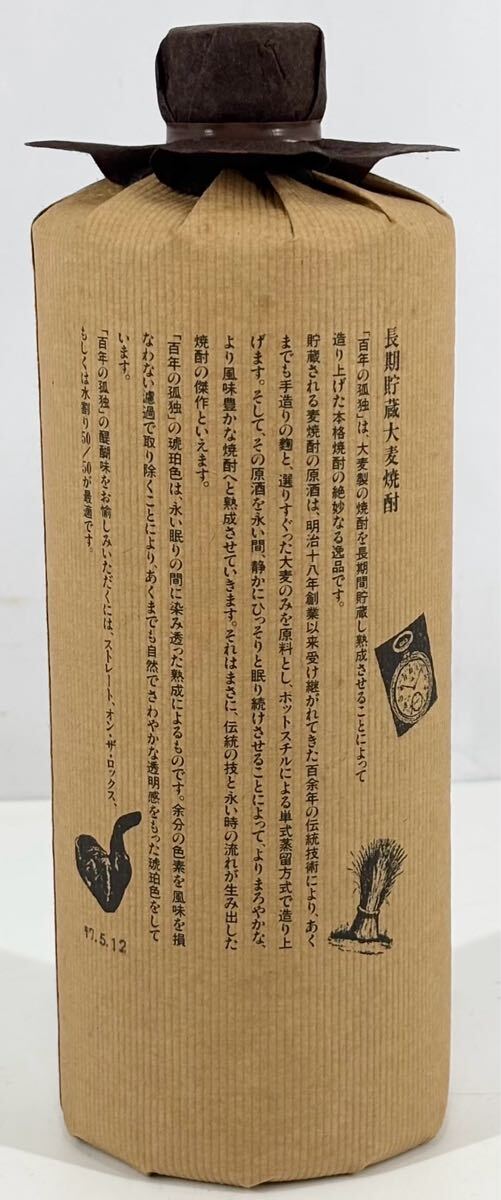 長期貯蔵大麦焼酎
「百年の孤独」は、大麦製の焼酎を長期間貯蔵し熟成させることによって
造り上げた本格焼酎の絶妙なる逸品です。
貯蔵される麦焼酎の原酒は、明治十八年創業以来受け継がれてきた百余年の伝統技術により、あく
までも手造りの麹と、選りすぐった大麦のみを原料とし、ポットスチルによる単式蒸留方式で造り上
げます。そして、その原酒を永い間、静かにひっそりと眠り続けさせることによって、よりまろやかな、
より風味豊かな焼酎へと熟成させていきます。それはまさに、伝統の技と永い時の流れが生み出した
焼酎の傑作といえます。
「百年の孤独」の琥珀色は、永い眠りの間に染み透った熟成によるものです。余分の色素を風味を損
なわない濾過で取り除くことにより、あくまでも自然でさわやかな透明感をもった琥珀色をして
います。
「百年の孤独」の醍醐味をお愉しみいただくには、ストレート、オン・ザ・ロックス、
もしくは水割り50/50が最適です。
97.5.12